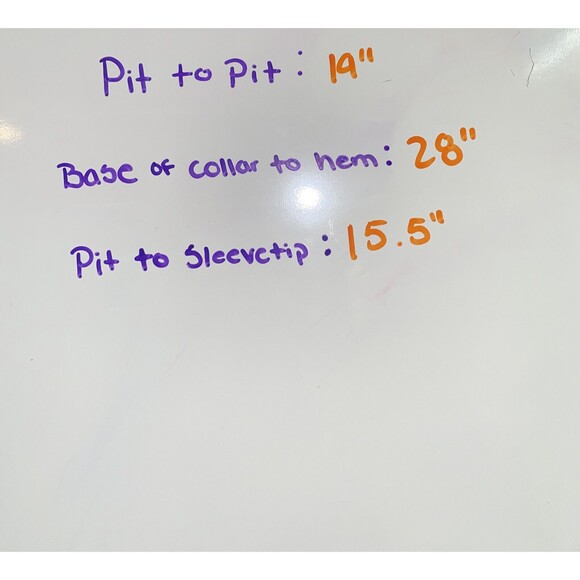 Pit to Pit: 19"
Base of collar to hem: 28"
Pit to Sleevetip: 15.5"